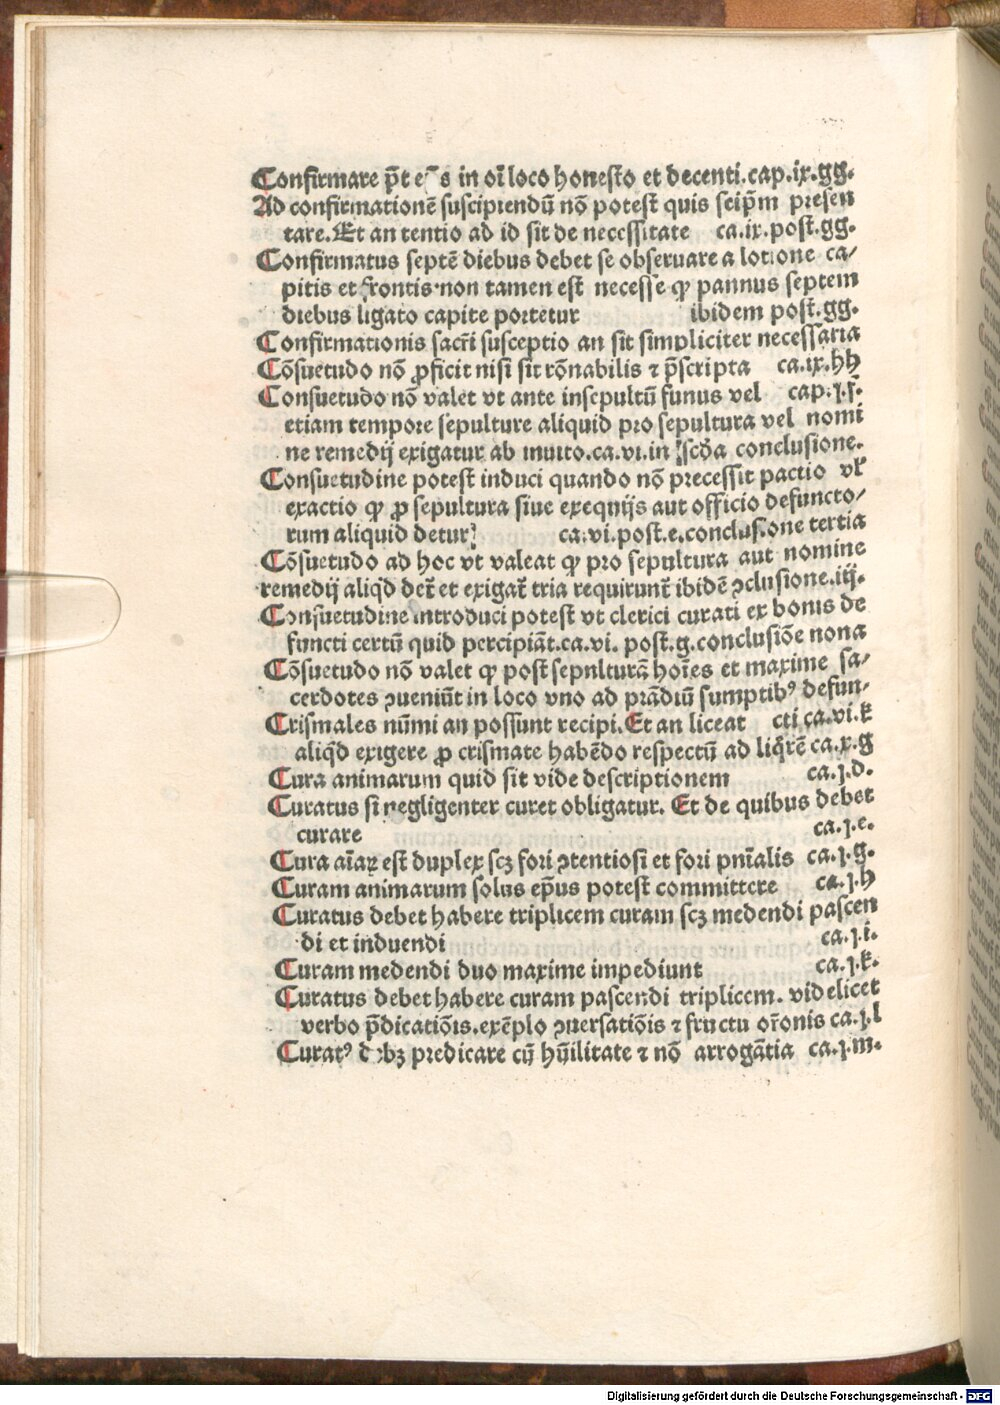 Confirmare p̄t e‾s in oī loco honesto et decenti.cap.ix.gg.
Ad confirmationē suscipiendū nō potest quis seip̄m presen
tare.Et an tentio ad id sit de necessitate ca.ix.post.gg.
Confirmatus septē diebus debet se obseruare a lotione ca⸗
pitis et frontis.non tamen est necesse ꝙ pannus septem
diebus ligato capite portetur ibidem post.gg.
Confirmationis sacr̄i susceptio an sit simpliciter necessaria
Cōsuetudo nō ꝓficit nisi sit rōnabilis ⁊ p̄scripta ca.ix.hh
Consuetudo nō valet vt ante insepultū funus vel cap.j.f.
etiam tempore sepulture aliquid pro sepultura vel nomi
ne remedij exigatur ab inuito.ca.vi.in scḋa conclusione.
Consuetudine potest induci quando nō precessit pactio vl̄
exactio ꝙ ꝓ sepultura siue exequijs aut officio defuncto⸗
rum aliquid detur ca.vi.post.e.conclusione tertia
Cōsuetudo ad hoc vt valeat ꝙ pro sepultura aut nomine
remedij aliq̇d det̄ et exigat̄ tria requirunt̄ ibidē ꝯclusione.iij.
Consuetudine introduci potest vt clerici curati ex bonis de
functi certū quid percipiāt.ca.vi. post.g.conclusiōe nona
Cōsuetudo nō valet ꝙ post sepulturā hoīes et maxime sa⸗
cerdotes ꝯueniūt in loco vno ad prādiū sumptibꝰ defun⸗
Crismales nūmi an possunt recipi.Et an liceat cti ca.vi.k
aliq̇d exigere ꝓ crismate habēdo respectū ad liq̄rē ca.x.g
Cura animarum quid sit vide descriptionem ca.j.d.
Curatus si negligenter curet obligatur. Et de quibus debet
curare ca.j.e.
Cura aīaꝝ est duplex scꝫ fori ꝯtentiosi et fori pn̄ialis ca.j.g.
Curam animarum solus ep̄us potest committere ca.j.h
Curatus debet habere triplicem curam scꝫ medendi pascen
di et induendi ca.j.i.
Curam medendi duo maxime impediunt ca.j.k.
Curatus debet habere curam pascendi triplicem. videlicet
verbo p̄dicatiōis.exēplo ꝯuersatiōis ⁊ fructu or̄onis ca.j.l
Curatꝰ debꝫ predicare cū hūilitate ⁊ nō arrogātia ca.j.m.
Digitalisierung gefördert durch die Deutsche Forschungsgemeinschaft - DFG